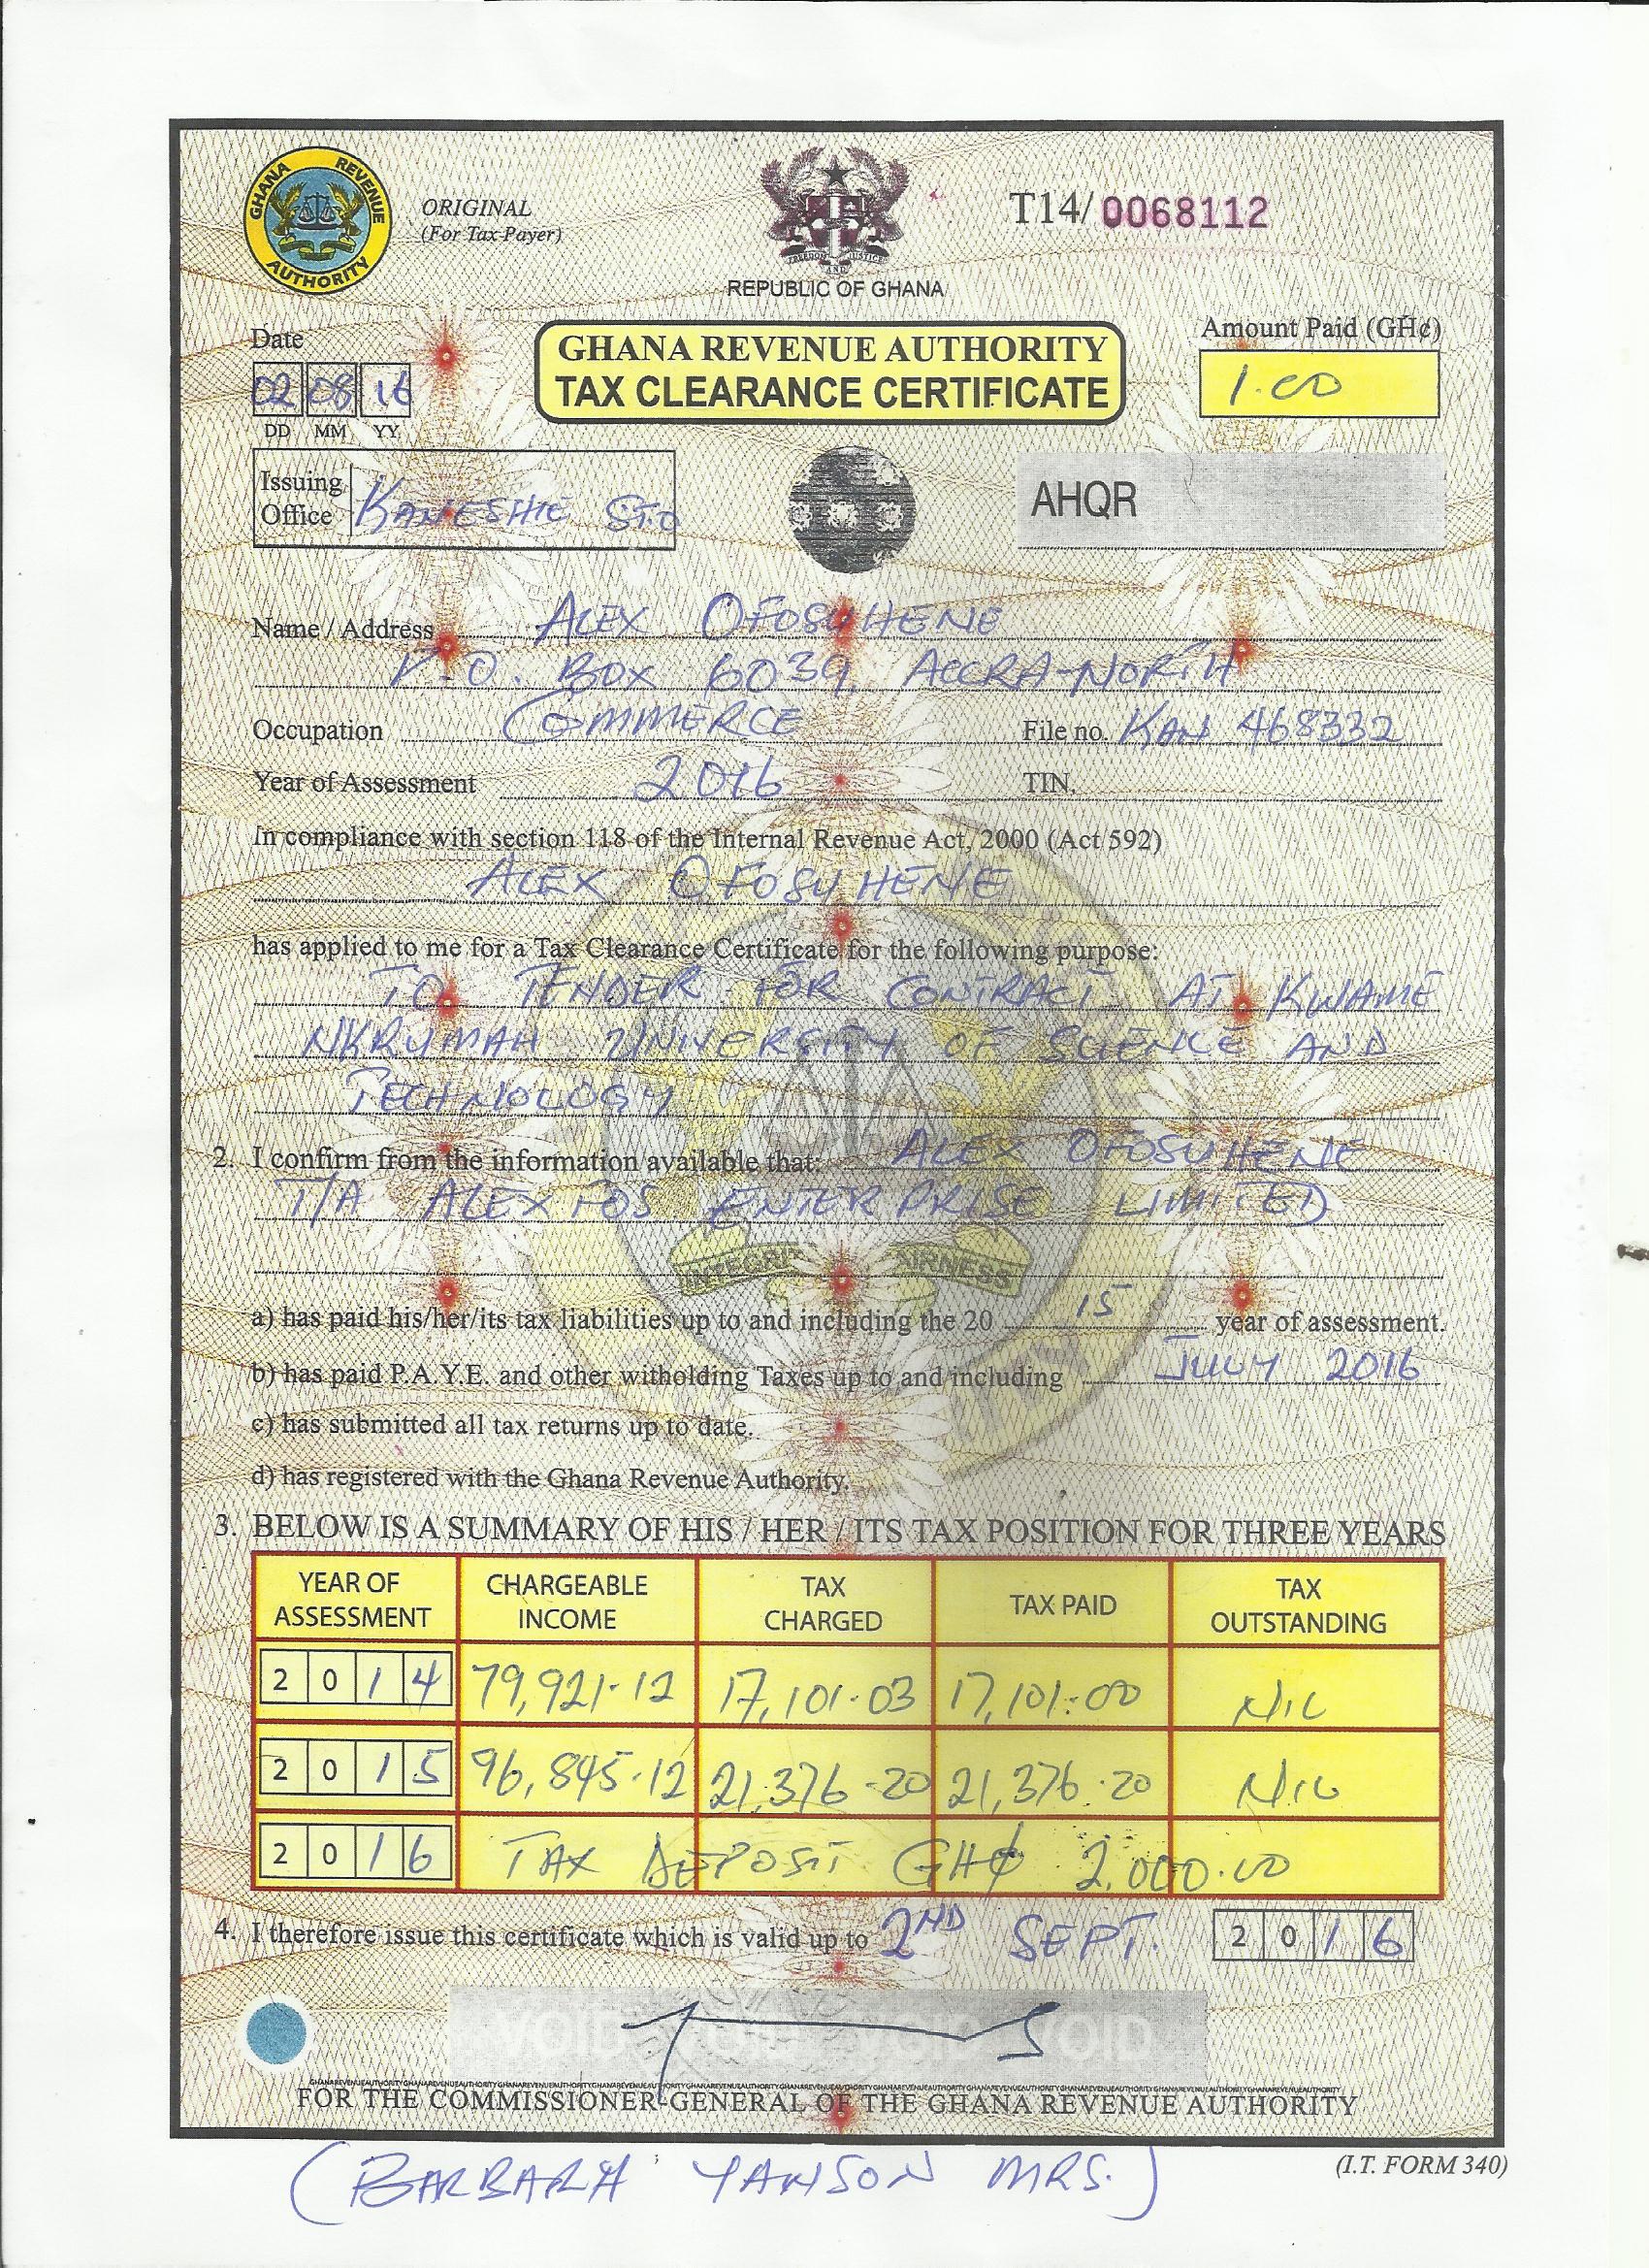 GHANA REVENUE AUTHORITY
ORIGINAL
(For Tax Payer)
FREEDOM AND JUSTICE
REPUBLIC OF GHANA
T14/0068112
Date
02 08 16
DD MM YY
GHANA REVENUE AUTHORITY
TAX CLEARANCE CERTIFICATE
Amount Paid (GH¢)
1.00
Issuing Office KANESHIE STO
AHQR
Name / Address ALEX OFOSUHENE
P.O. BOX 6039, ACCRA-NORTH
Occupation COMMERCE File no. KAN 468332
Year of Assessment 2016 TIN.
In compliance with section 118 of the Internal Revenue Act, 2000 (Act 592)
ALEX OFOSUHENE
has applied to me for a Tax Clearance Certificate for the following purpose:
TO TENDER FOR CONTRACT AT KWAME
NKRUMAH UNIVERSITY OF SCIENCE AND
TECHNOLOGY
2. I confirm from the information available that: ALEX OFOSUHENE
T/A ALEXFOS ENTERPRISE LIMITED
a) has paid his/her/its tax liabilities up to and including the 20 15 year of assessment.
b) has paid P.A.Y.E. and other witholding Taxes up to and including JULY 2016
c) has submitted all tax returns up to date.
d) has registered with the Ghana Revenue Authority.
3. BELOW IS A SUMMARY OF HIS / HER / ITS TAX POSITION FOR THREE YEARS
YEAR OF ASSESSMENT CHARGEABLE INCOME TAX CHARGED TAX PAID TAX OUTSTANDING
2014 79,921.12 17,101.03 17,101.00 NIL
2015 96,845.12 21,376.20 21,376.20 NIL
2016 TAX DEPOSIT GH¢ 2,000.00
4. I therefore issue this certificate which is valid up to 2ND SEPT. 2016
VOID VOID VOID VOID
FOR THE COMMISSIONER-GENERAL OF THE GHANA REVENUE AUTHORITY
(I.T. FORM 340)
(BARBARA YANSON MRS.)